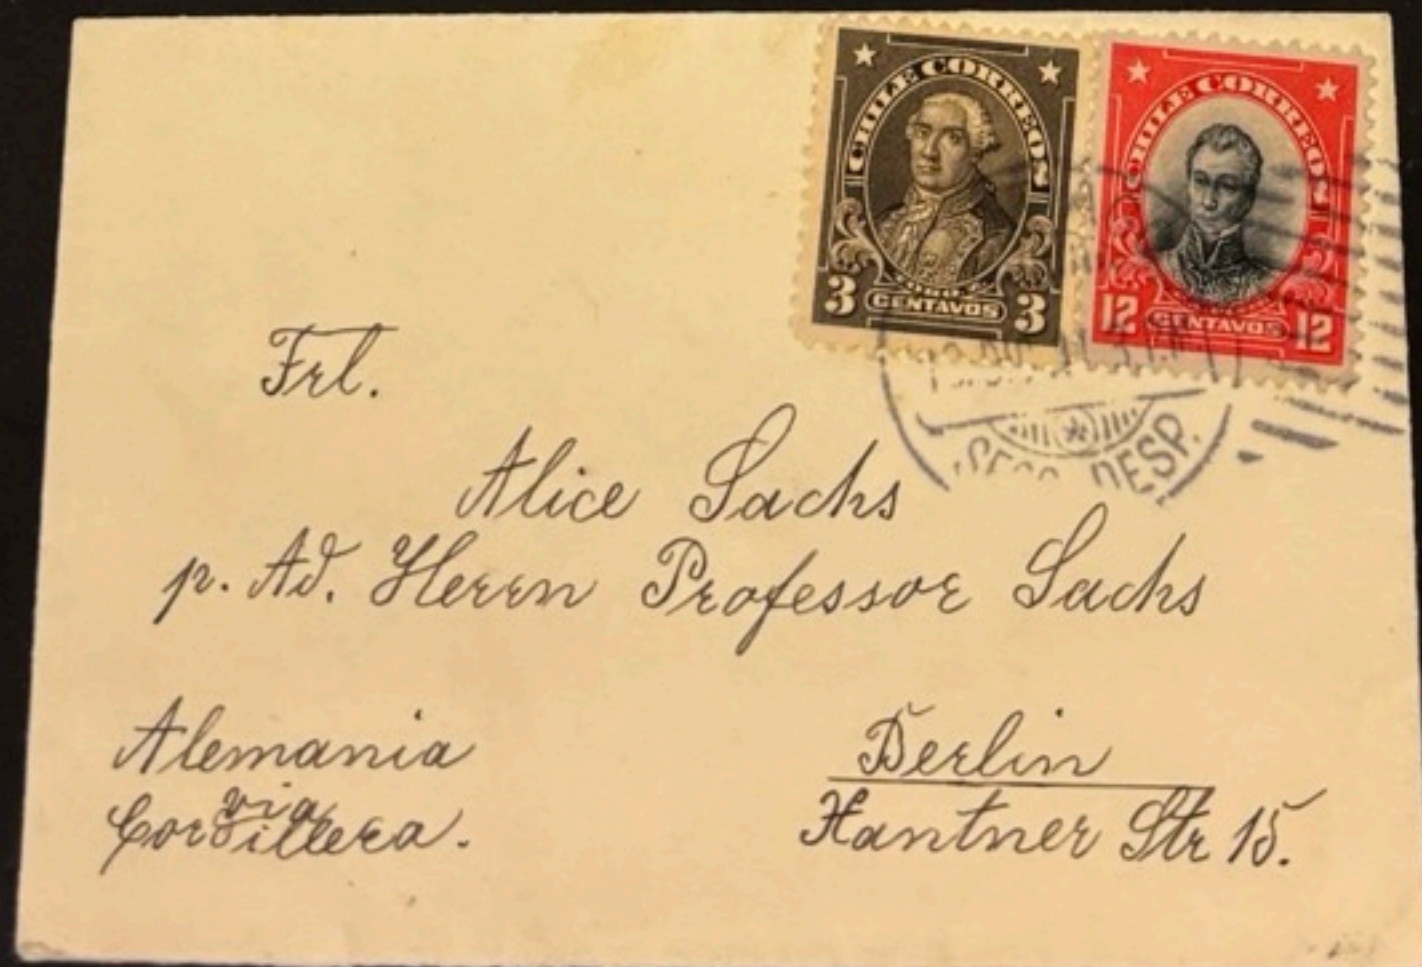 CHILE CORREOS
3 CENTAVOS 3
CHILE CORREOS
12 CENTAVOS 12
DESP.
Frl.
Alice Sachs
p. Ad. Herrn Professor Sachs
Alemania
via
Cordillera.
Berlin
Hantner Str 15.